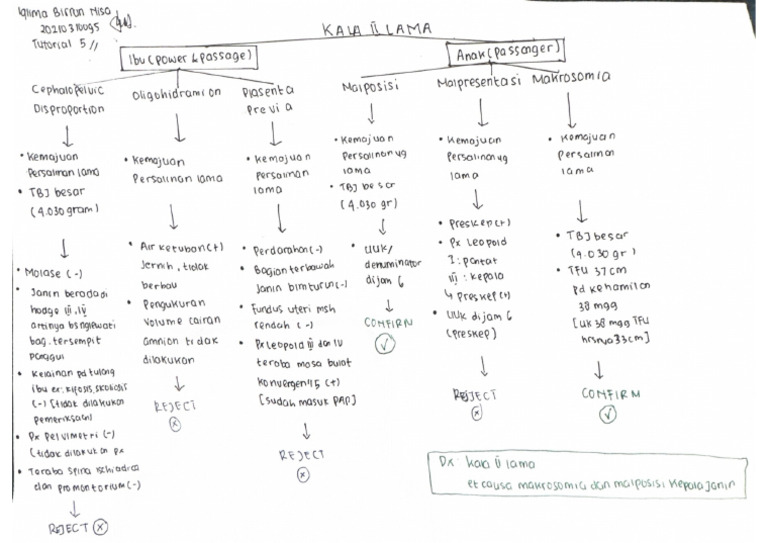 Iqlima Birrun Nisa
20210310095
Tutorial 5 //
KALA II LAMA
Ibu (power & passage)
Anak (passanger)
Cephalopelvic
Disproportion
• Kemajuan
Persalinan lama
• TBJ besar
(4.030 gram)
• Molase (-)
• Janin berada di
hodge III, IV
artinya bs nglewati
bag. tersempit
panggul
• Kelainan pd tulang
ibu ex. kifosis, skoliosis
(-) [tidak dilakukan
pemeriksaan]
• Px Pelvimetri (-)
(tidak dilakukan px
• Teraba spina ischiadica
dan promontorium (-)
REJECT
Oligohidramion
• Kemajuan
Persalinan lama
• Air ketuban (+)
Jernih, tidak
berbau
• Pengukuran
volume cairan
amnion tidak
dilakukan
REJECT
Plasenta
Previa
• Kemajuan
Persalinan
lama
• Perdarahan (-)
• Bagian terbawah
Janin blm turun (-)
• Fundus uteri msh
rendah (-)
• Px Leopold III dan IV
teraba masa bulat
konvergen 4/5 (+)
[sudah masuk PAP]
REJECT
Malposisi
• Kemajuan
Persalinan yg
lama
• TBJ besar
(4.030 gr)
• UUK/
denuminator
di jam 6
CONFIRM
Malpresentasi
• Kemajuan
Persalinan yg
lama
• Preskep (+)
• Px Leopold
I : pantat
III : kepala
↳ preskep (+)
• UUK di jam 6
(preskep)
REJECT
Makrosomia
• Kemajuan
Persalinan
lama
• TBJ besar
(4.030 gr)
• TFU 37 cm
pd kehamilan
38 mgg
[uk 38 mgg TFU
hrsnya 33 cm]
CONFIRM
Dx : kala II lama
et causa makrosomia dan malposisi kepala janin